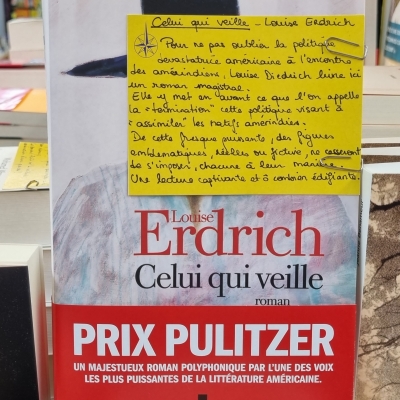 Celui qui veille - Louise Erdrich
Pour ne pas oublier la politique
dévastatrice américaine à l'encontre
des amérindiens, Louise livre ici
un roman magistral.
Elle y met en avant ce que l'on appelle
la "termination" cette politique visant à
"assimiler" les natifs amérindiens.
De cette fresque puissante, des figures
emblématiques, réelles ou fictive, ne cesseront
de s'imposer, chacune à leur manière.
Une lecture captivante et ô combien édifiante.
Louise
Erdrich
Celui qui veille
roman
PRIX PULITZER
UN MAJESTUEUX ROMAN POLYPHONIQUE PAR L'UNE DES VOIX
LES PLUS PUISSANTES DE LA LITTÉRATURE AMÉRICAINE.